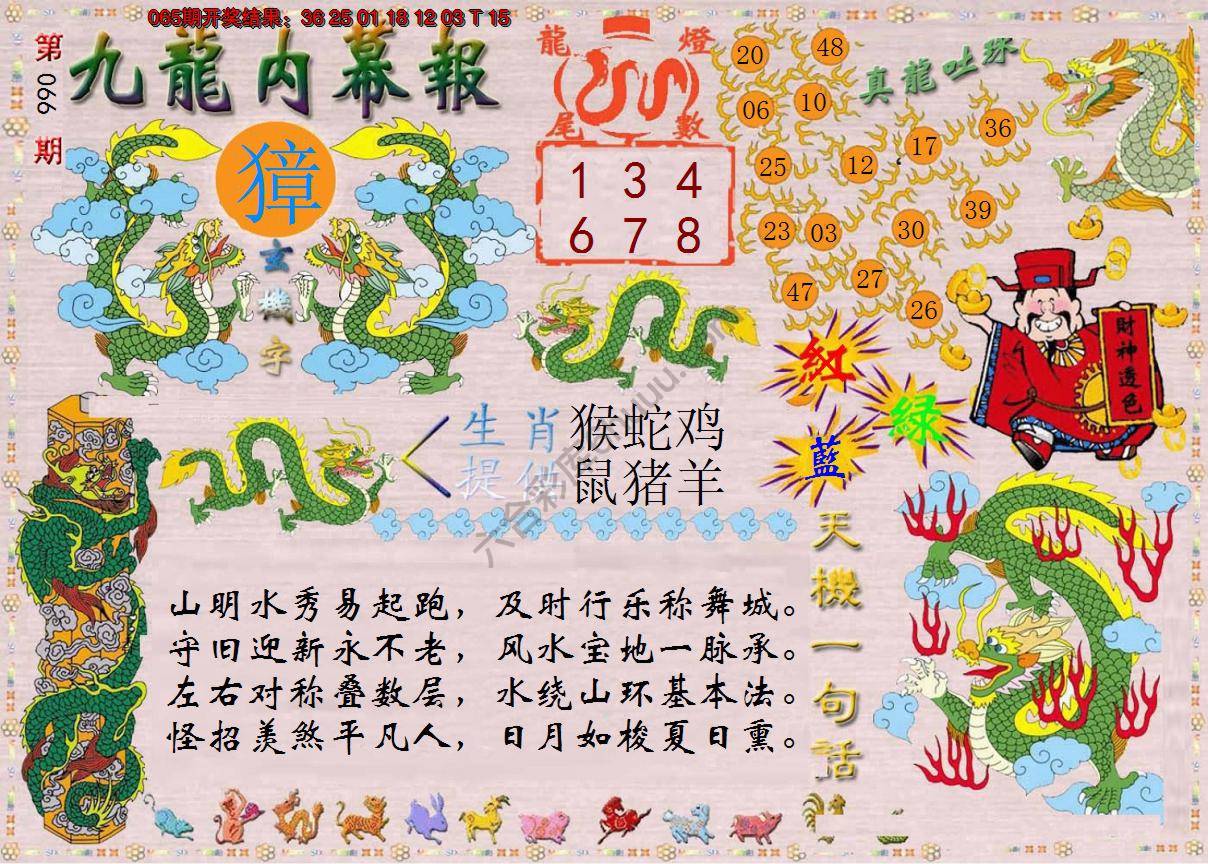 065期开奖结果：36 25 01 18 12 03 T 15
第
066
期
九龍内幕報
獐
玄
機
字
龍
燈
尾
數
1 3 4
6 7 8
真龍吐珠
20
48
06
10
25
12
17
36
23
03
30
39
47
27
26
財神透色
紅
綠
藍
生肖
提供
猴蛇鸡
鼠猪羊
天機一句話
山明水秀易起跑，及时行乐称舞城。
守旧迎新永不老，风水宝地一脉承。
左右对称叠数层，水绕山环基本法。
怪招羡煞平凡人，日月如梭夏日熏。